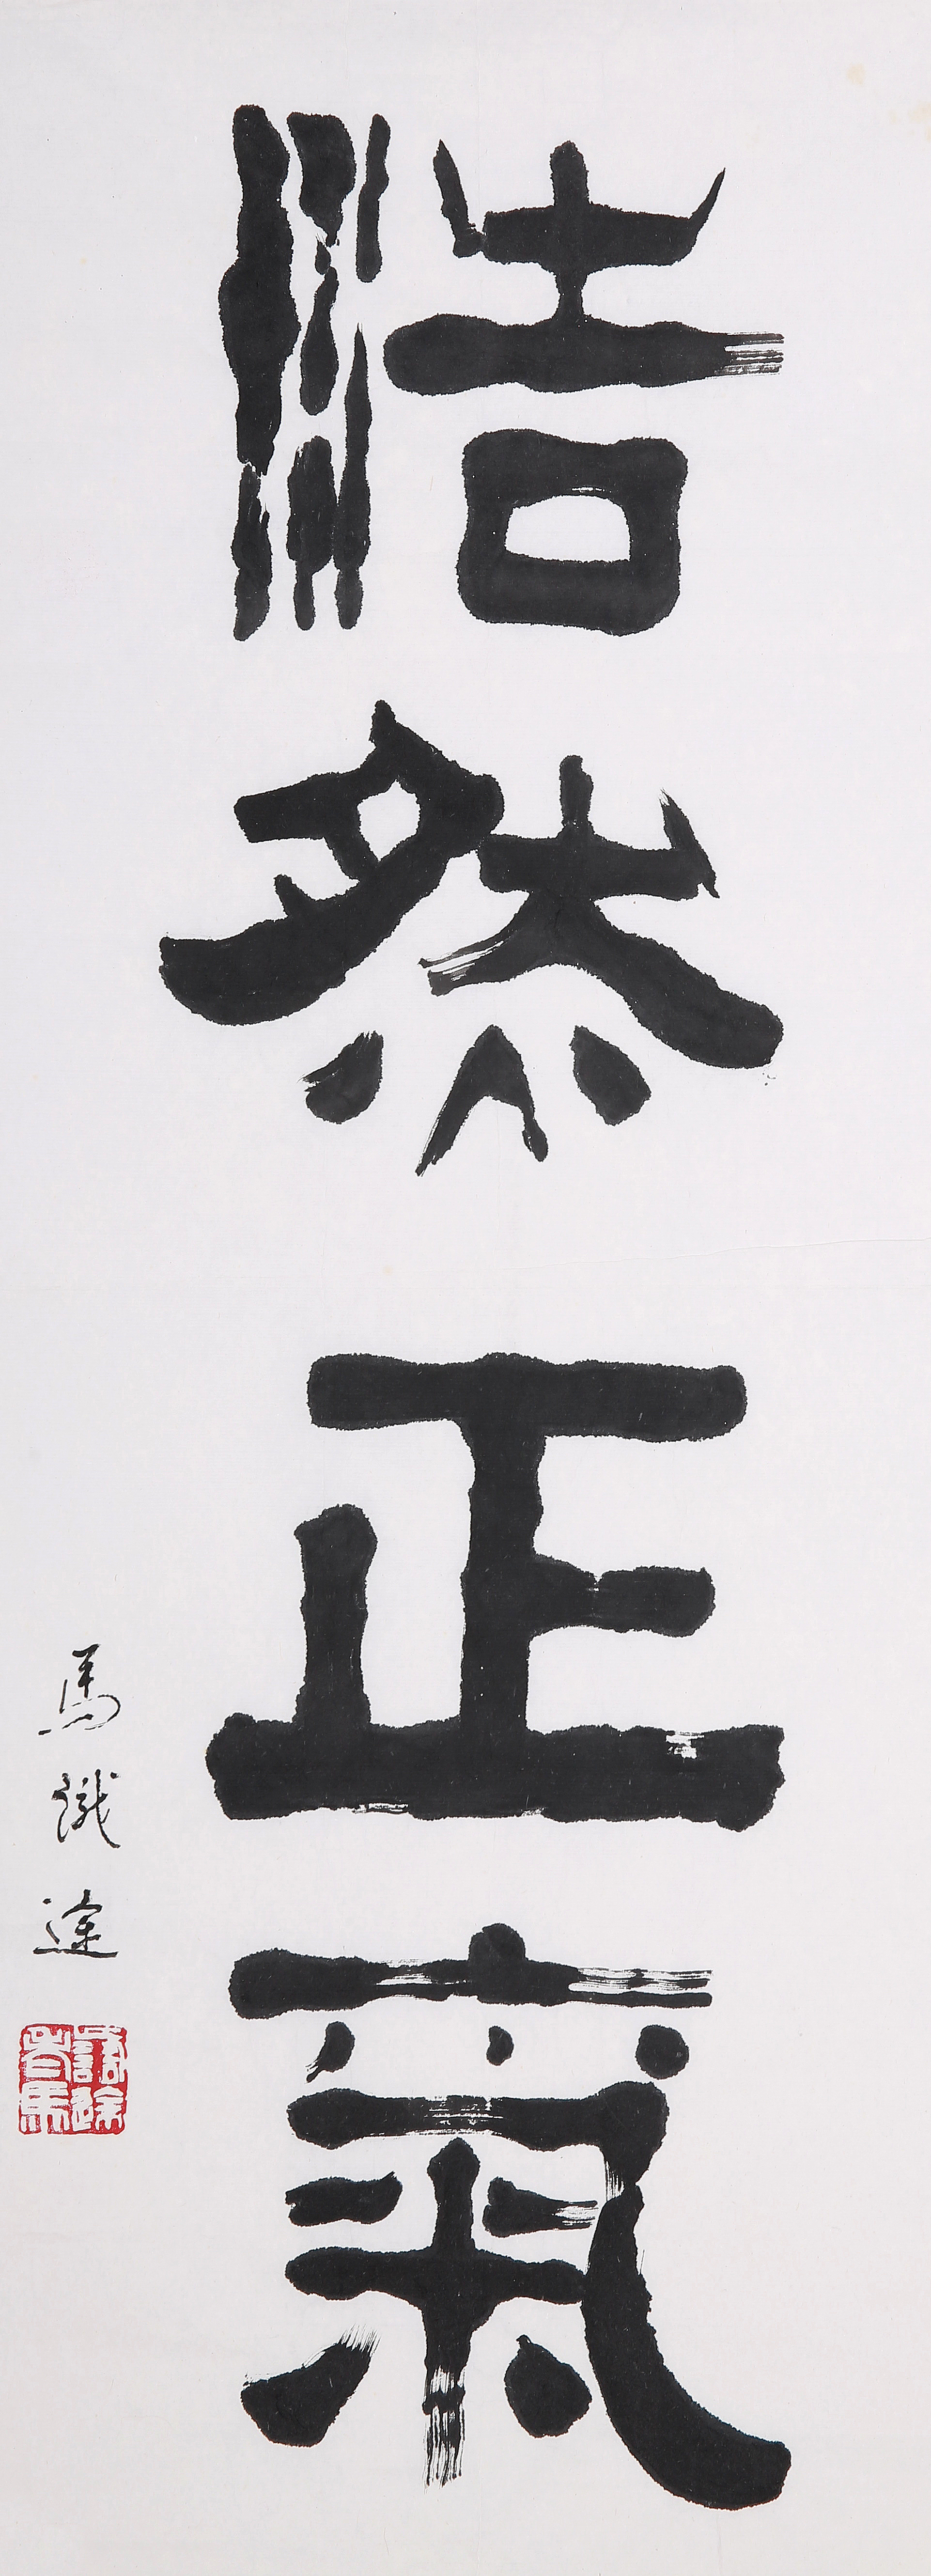 浩然正氣
馬識途